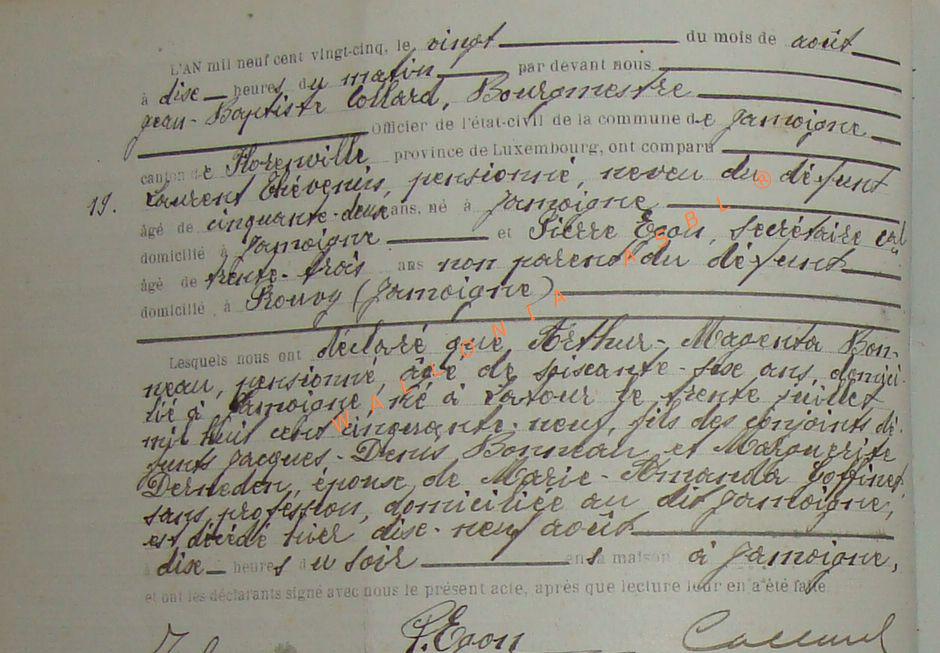 L'AN mil neuf cent vingt-cinq, le vingt du mois de août
à dise heures du matin par devant nous
Jean-Baptiste Collard, Bourgmestre
Officier de l'état-civil de la commune de Jamoigne
canton de Florenville province de Luxembourg, ont comparu
19. Laurent Thévenin, pensionné, neveu du défunt
âgé de cinquante-deux ans, né à Jamoigne
domicilié à Jamoigne et Pierre Egon, secrétaire cal
âgé de trente-trois ans non parent du défunt
domicilié à Rouvoy (Jamoigne)
Lesquels nous ont déclaré que Arthur-Magenta Bon-
neau, pensionné, âgé de soisante-sise ans, domici-
lié à Jamoigne, né à Latour le trente juillet
mil huit cent cinquante-neuf, fils des conjoints dé-
funts Jacques-Denis Bonneau et Marguerite
Derneden, épouse de Marie-Amanda Coffinet,
sans profession, domiciliée au dit Jamoigne,
est décédé hier dise-neuf août
à dise heures du soir en sa maison à Jamoigne,
et ont les déclarants signé avec nous le présent acte, après que lecture leur en a été faite.
P. Egon Collard
WALLONIA ASBL ®